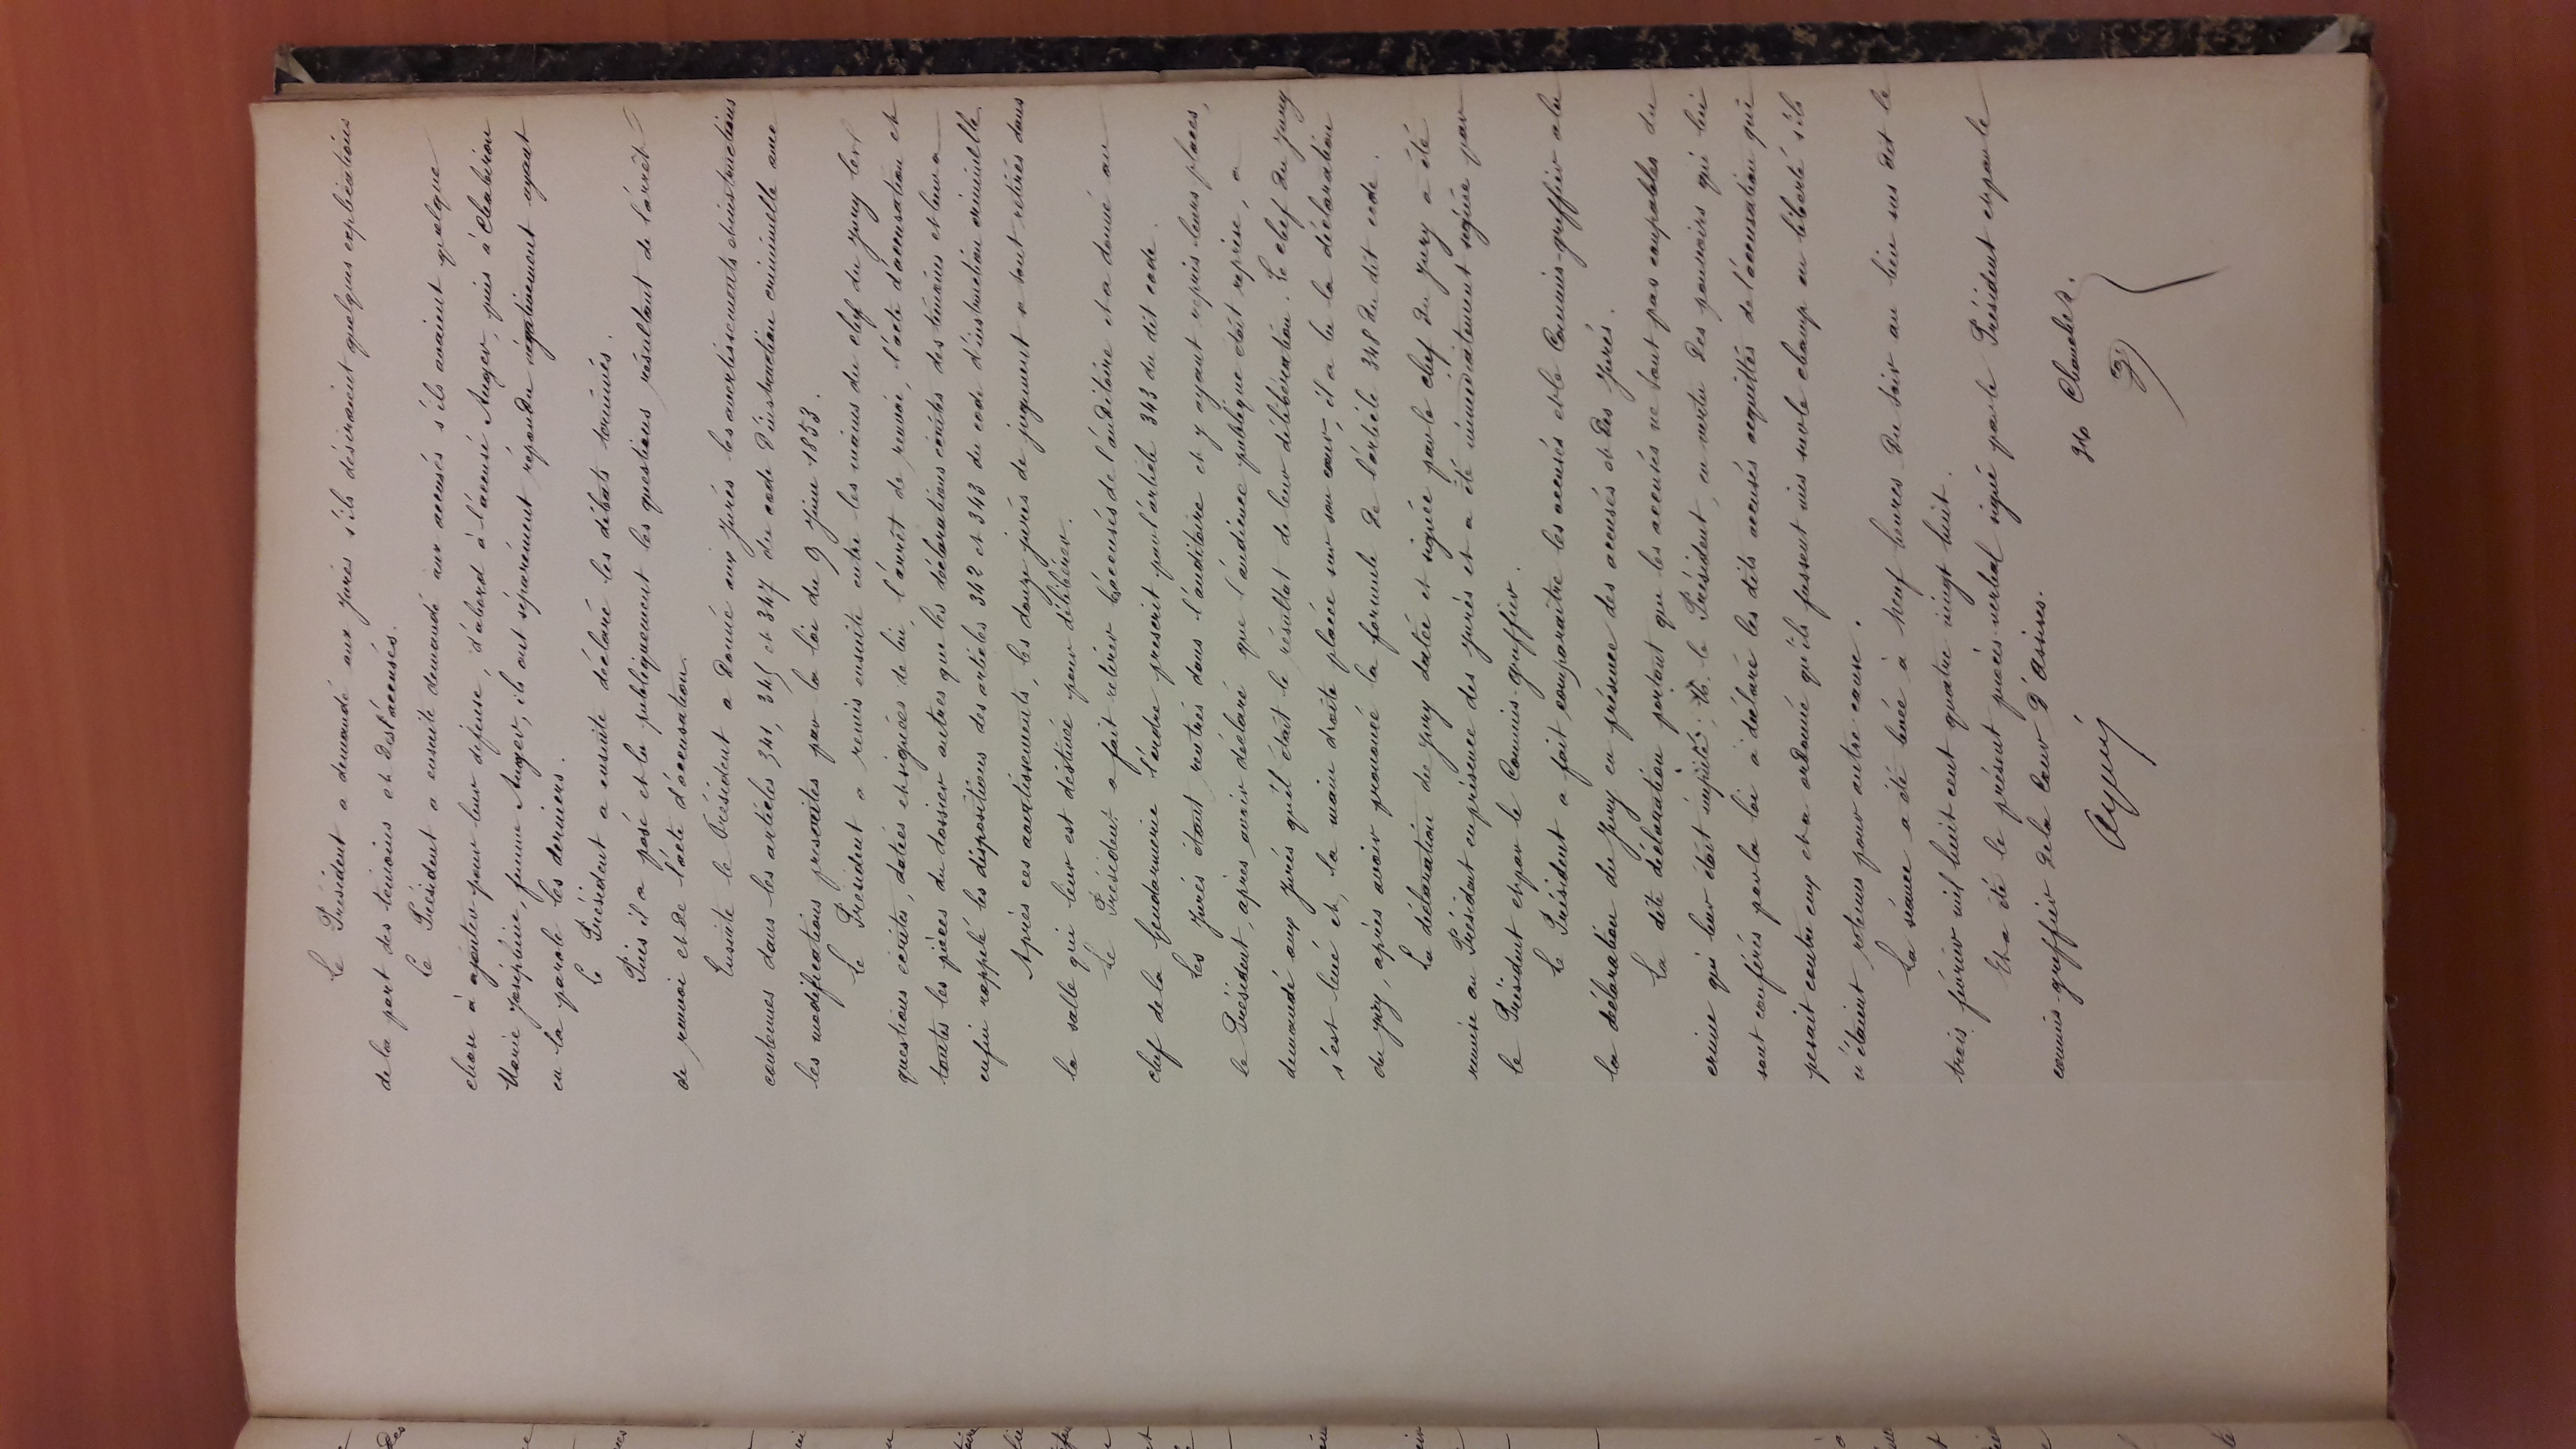 Le Président a demandé aux jurés s'ils désiraient quelques explications
de la part des témoins et des accusés.
Le Président a ensuite demandé aux accusés s'ils avaient quelque
chose à ajouter pour leur défense, d'abord à l'accusé Auger, puis à Chabiron
Marie Joséphine, femme Auger, ils ont séparément répondu négativement ayant
eu la parole les derniers.
Le Président a ensuite déclaré les débats terminés.
Puis il a posé et lu publiquement les questions résultant de l'arrêt
de renvoi et de l'acte d'accusation.
Ensuite le Président a donné aux jurés les avertissements et instructions
contenus dans les articles 341, 345 et 347 du code d'instruction criminelle avec
les modifications prescrites par la loi du 9 Juin 1853.
Le Président a remis ensuite entre les mains du chef du jury les
questions écrites, datées et signées de lui, l'arrêt de renvoi, l'acte d'accusation et
toutes les pièces du dossier autres que les déclarations écrites des témoins et leur a
enfin rappelé les dispositions des articles 342 et 343 du code d'instruction criminelle.
Après ces avertissements, les douze jurés de jugement se sont retirés dans
la salle qui leur est destinée pour délibérer.
Le Président a fait retirer les accusés de l'auditoire et a donné au
chef de la Gendarmerie l'ordre prescrit par l'article 343 du dit code.
Les Jurés étant rentrés dans l'auditoire et y ayant repris leurs places,
le Président, après avoir déclaré que l'audience publique était reprise, a
demandé aux jurés quel était le résultat de leur délibération. Le chef du Jury
s'est levé et, la main droite placée sur son cœur, il a lu la déclaration
du jury, après avoir prononcé la formule de l'article 348 du dit code.
La déclaration du jury datée et signée par le chef du jury a été
remise au Président en présence des jurés et a été immédiatement signée par
le Président et par le Commis-greffier.
Le Président a fait comparaître les accusés et le Commis-greffier a lu
la déclaration du jury en présence des accusés et des jurés.
La dite déclaration portant que les accusés ne sont pas coupables du
crime qui leur était imputé; M. le Président, en vertu des pouvoirs qui lui
sont conférés par la loi a déclaré les dits accusés acquittés de l'accusation qui
pesait contre eux et a ordonné qu'ils fussent mis sur le champ en liberté s'ils
n'étaient retenus pour autre cause.
La séance a été levée à neuf heures du soir au lieu sus dit le
trois février mil huit cent quatre vingt huit.
Et a été le présent procès-verbal signé par le Président et par le
commis-greffier de la Cour d'Assises.